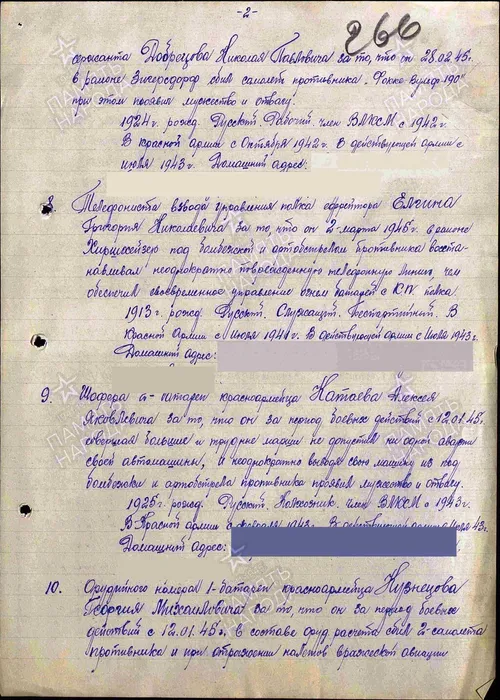 -2-
266
сержанта Добрецова Николая Павловича за то, что он 28.02.45г.
в районе Зигерсдорф сбил самолет противника „Фокке-Вульф-190"
при этом проявил мужество и отвагу.
1924г. рожд. Русский. Рабочий член ВЛКСМ с 1942г.
В красной армии с Октября 1942г. В действующей армии с
июля 1943г. Домашний адрес:
8. Телефониста взвода управления полка ефрейтора Елгина
Григория Николаевича за то, что он 2 марта 1945г. в районе
под бомбежкой и артобстрелом противника восста-
навливал неоднократно поврежденную телефонную линию, чем
обеспечил своевременное управление огнем батарей с К.П. полка.
1913г. рожд. Русский. Служащий. Беспартийный. В
Красной Армии с Июля 1941г. В действующей армии с Июля 1943г.
Домашний адрес:
9. Шофера батареи красноармейца Катаева Алексея
Яковлевича за то, что он за период боевых действий с 12.01.45г.
совершая большие и трудные марши не допустил ни одной аварии
своей автомашины, и неоднократно выводя свою машину из под
бомбежки и артобстрела противника проявил мужество и отвагу.
1925г. рожд. Русский. Колхозник. член ВЛКСМ с 1943г.
В Красной армии с февраля 1943г. В действующей армии с Июля 43г.
Домашний адрес:
10. Орудийного номера 1-батареи красноармейца Кузнецова
Георгия Михайловича за то что он за период боевых
действий с 12.01.45г. в составе оруд. расчета сбил 2-самолета
противника и при отражении налетов вражеской авиации